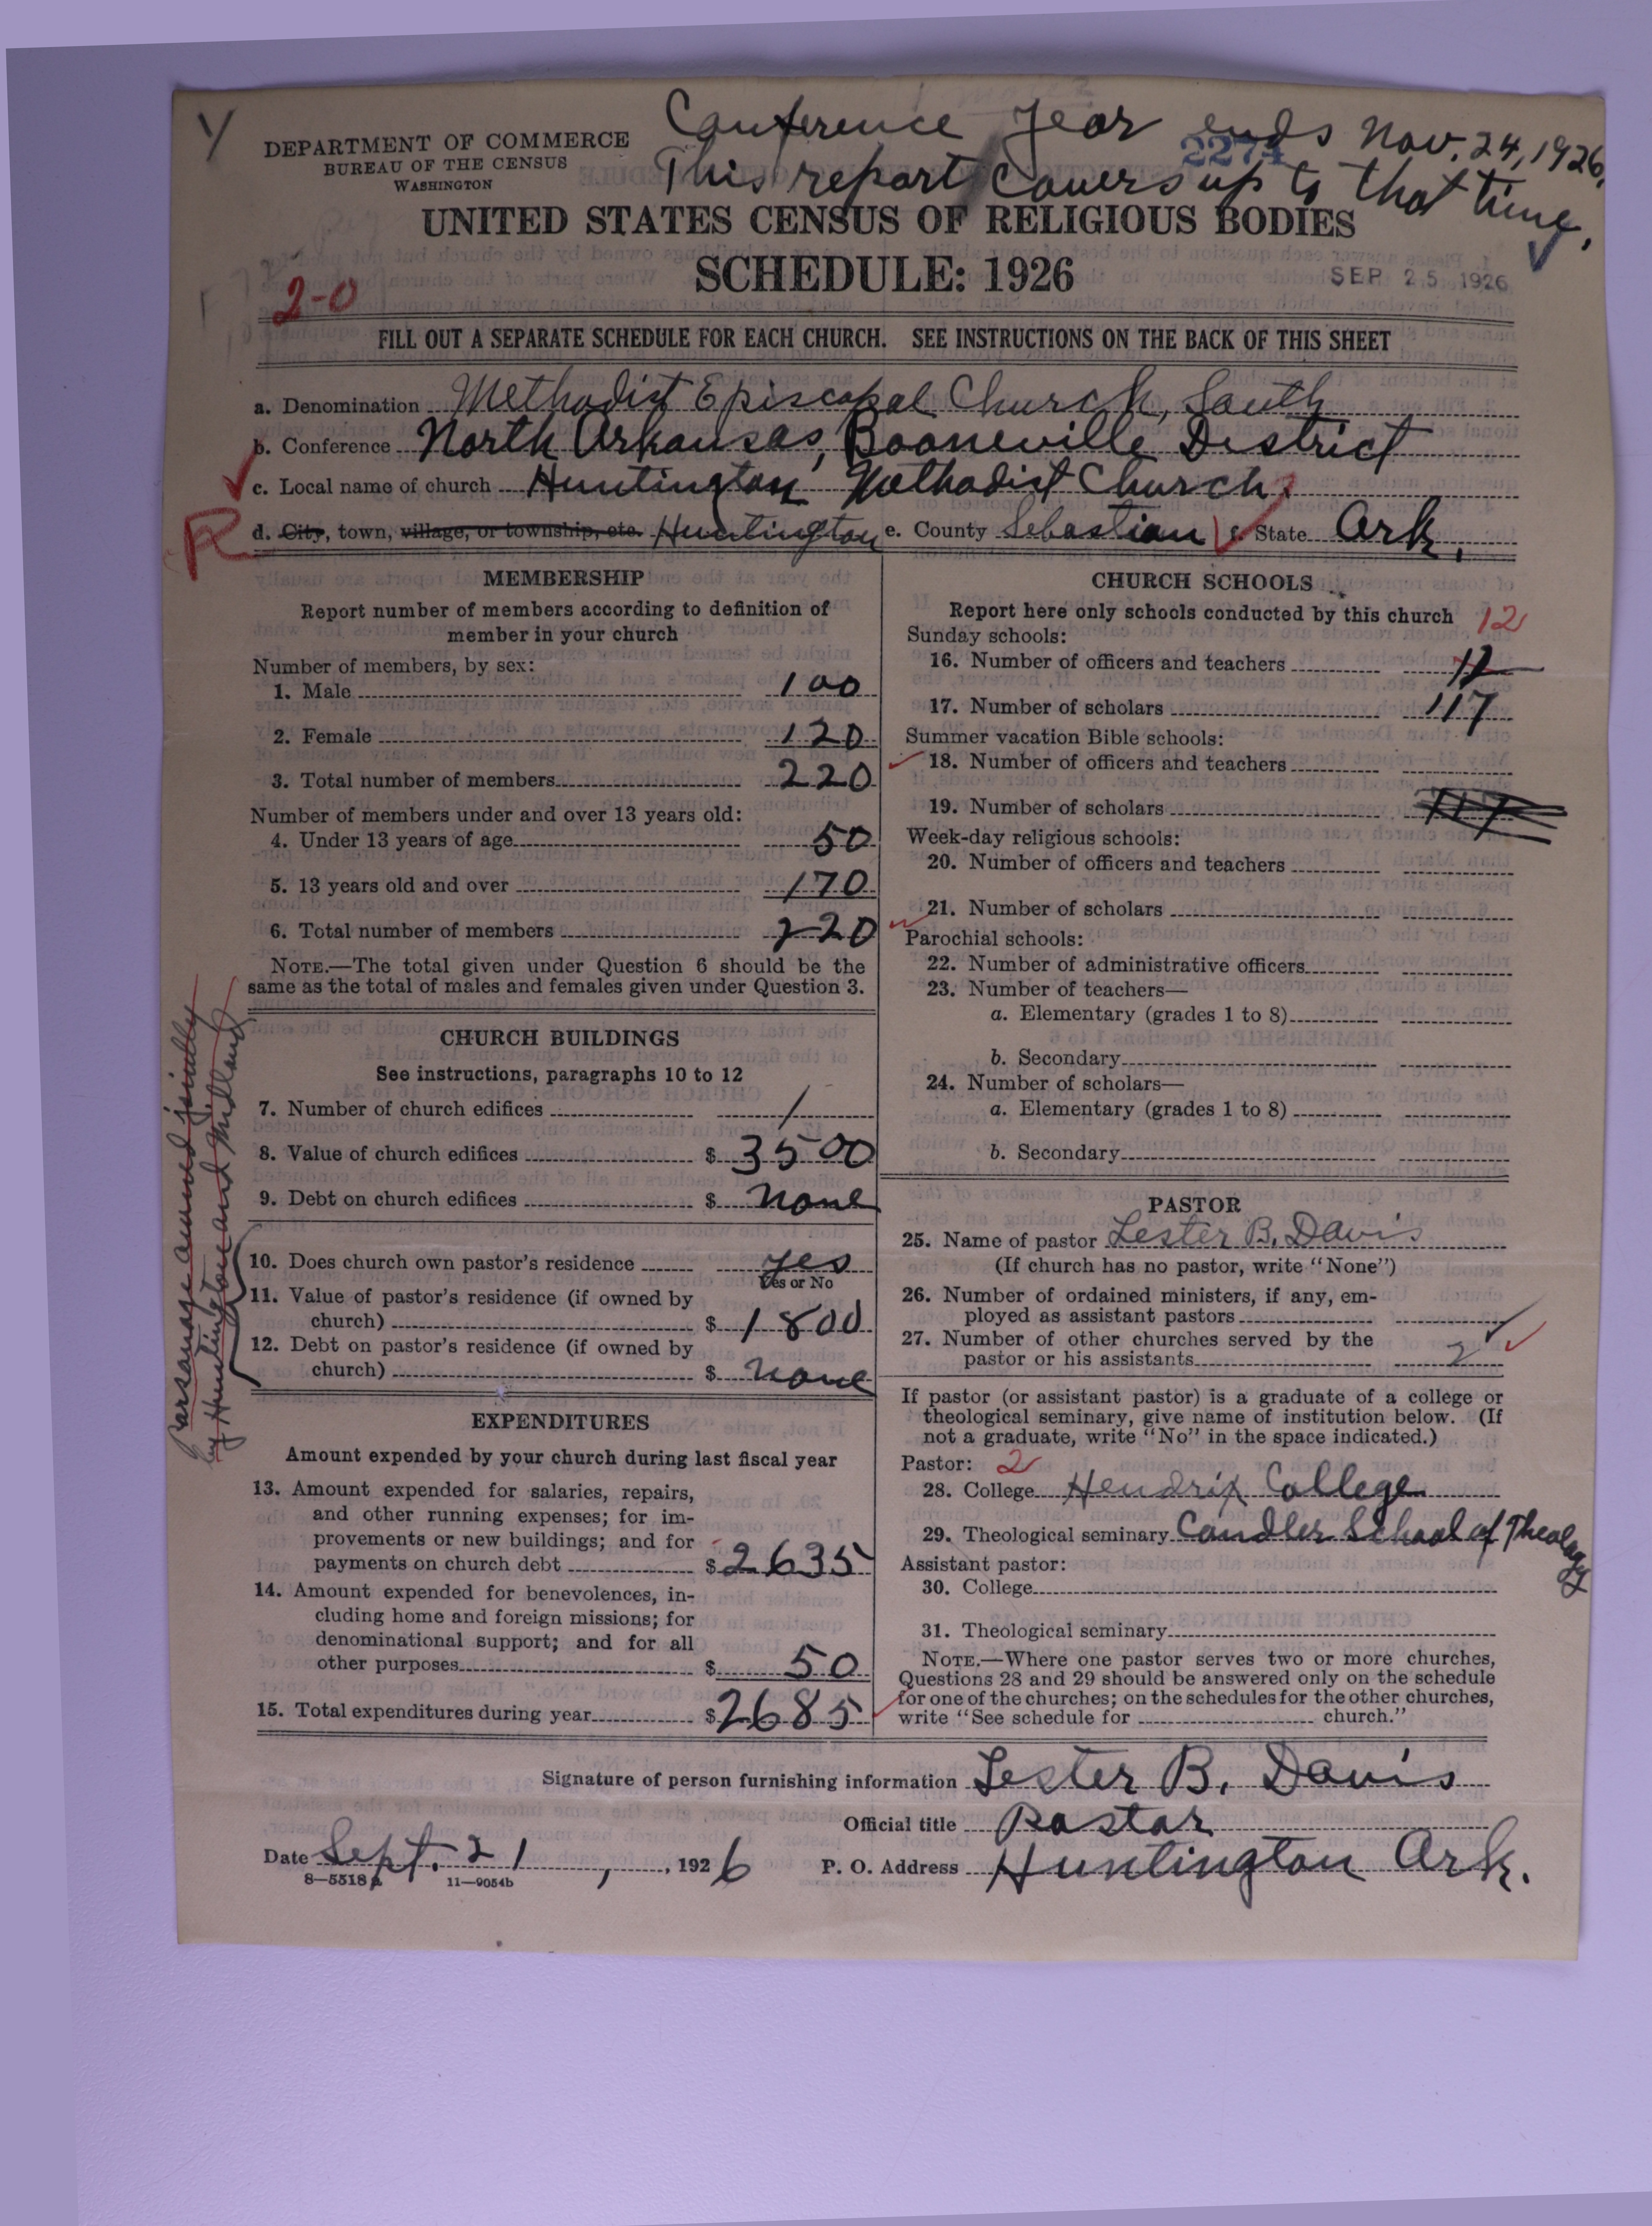 Conference year ends Nov. 24, 1926.
This report covers up to that time.
2274
DEPARTMENT OF COMMERCE
BUREAU OF THE CENSUS
WASHINGTON
UNITED STATES CENSUS OF RELIGIOUS BODIES
SCHEDULE: 1926
SEP 25 1926
2-0
FILL OUT A SEPARATE SCHEDULE FOR EACH CHURCH. SEE INSTRUCTIONS ON THE BACK OF THIS SHEET
a. Denomination Methodist Episcopal Church, South
b. Conference North Arkansas, Booneville District
c. Local name of church Huntington Methodist Church.
R
d. City, town, village, or township, etc. Huntington e. County Sebastian f. State Ark.
MEMBERSHIP
Report number of members according to definition of
member in your church
Number of members, by sex:
1. Male 100
2. Female 120
3. Total number of members 220
Number of members under and over 13 years old:
4. Under 13 years of age 50
5. 13 years old and over 170
6. Total number of members 220
NOTE.—The total given under Question 6 should be the
same as the total of males and females given under Question 3.
CHURCH BUILDINGS
See instructions, paragraphs 10 to 12
7. Number of church edifices 1
8. Value of church edifices $ 3500
9. Debt on church edifices $ none
10. Does church own pastor's residence yes
Yes or No
11. Value of pastor's residence (if owned by
church) $ 1800
12. Debt on pastor's residence (if owned by
church) $ none
Parsonage owned jointly
by Huntington and Midland
EXPENDITURES
Amount expended by your church during last fiscal year
13. Amount expended for salaries, repairs,
and other running expenses; for im-
provements or new buildings; and for
payments on church debt $ 2635
14. Amount expended for benevolences, in-
cluding home and foreign missions; for
denominational support; and for all
other purposes $ 50
15. Total expenditures during year $ 2685
CHURCH SCHOOLS
Report here only schools conducted by this church 12
Sunday schools:
16. Number of officers and teachers 12
17. Number of scholars 117
Summer vacation Bible schools:
18. Number of officers and teachers
19. Number of scholars 117
Week-day religious schools:
20. Number of officers and teachers
21. Number of scholars
Parochial schools:
22. Number of administrative officers
23. Number of teachers—
a. Elementary (grades 1 to 8)
b. Secondary
24. Number of scholars—
a. Elementary (grades 1 to 8)
b. Secondary
PASTOR
25. Name of pastor Lester B. Davis
(If church has no pastor, write "None")
26. Number of ordained ministers, if any, em-
ployed as assistant pastors
27. Number of other churches served by the
pastor or his assistants 2
If pastor (or assistant pastor) is a graduate of a college or
theological seminary, give name of institution below. (If
not a graduate, write "No" in the space indicated.)
Pastor: 2
28. College Hendrix College
29. Theological seminary Candler School of Theology
Assistant pastor:
30. College
31. Theological seminary
NOTE.—Where one pastor serves two or more churches,
Questions 28 and 29 should be answered only on the schedule
for one of the churches; on the schedules for the other churches,
write "See schedule for church."
Signature of person furnishing information Lester B. Davis
Official title Pastor
Date Sept. 21, 1926 P. O. Address Huntington Ark.
8—5518a 11—9054b